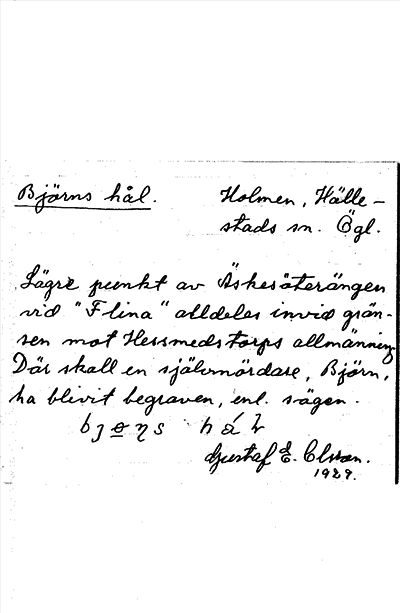 Björns hål.
Holmen, Hälle-
stads sn. Ögl.
Lägre punkt av Äskesåterängen
vid "Flina" alldeles invid grän-
sen mot Hessmedstorps allmänning.
Där skall en självmördare, Björn,
ha blivit begraven, enl. sägen.
Gustaf E. Olsson.
1929.